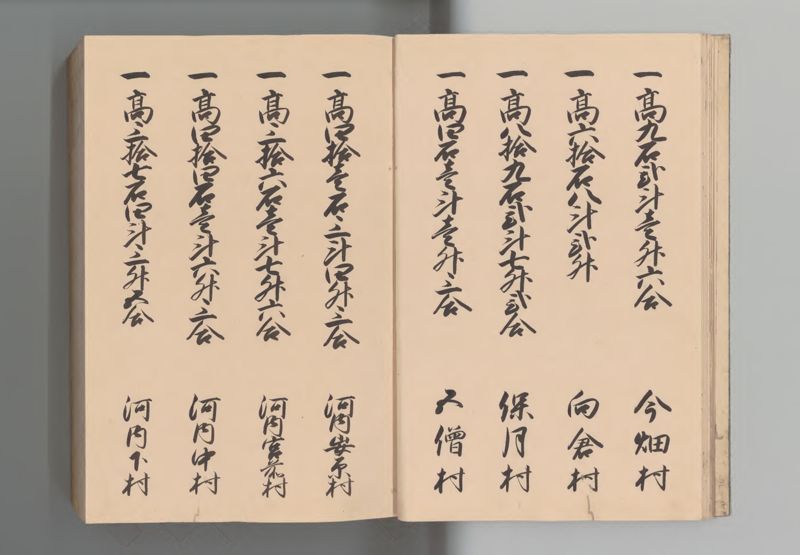 一高九石弐斗壱升六合　今畑村
一高六拾石八斗弐升　向倉村
一高八拾九石弐斗七升弐合　保月村
一高四石壱斗壱升三合　五僧村
一高四拾壱石三斗四升三合　河内安原村
一高三拾六石壱斗七升六合　河内宮前村
一高四拾四石壱斗六升三合　河内中村
一高三拾七石四斗三升五合　河内下村